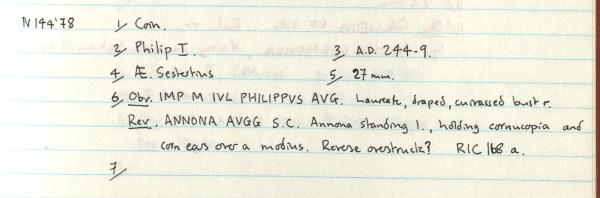 N144'78 1/ Coin.
2/ Philip I. 3/ A.D. 244-9.
4/ Æ. Sestertius 5/ 27 mm.
6/ Obv. IMP M IVL PHILIPPVS AVG. Laureate, draped, cuirassed bust r.
Rev. ANNONA AVGG S.C. Annona standing l., holding cornucopia and
corn ears over a modius. Reverse overstruck? RIC 168 a.
7/